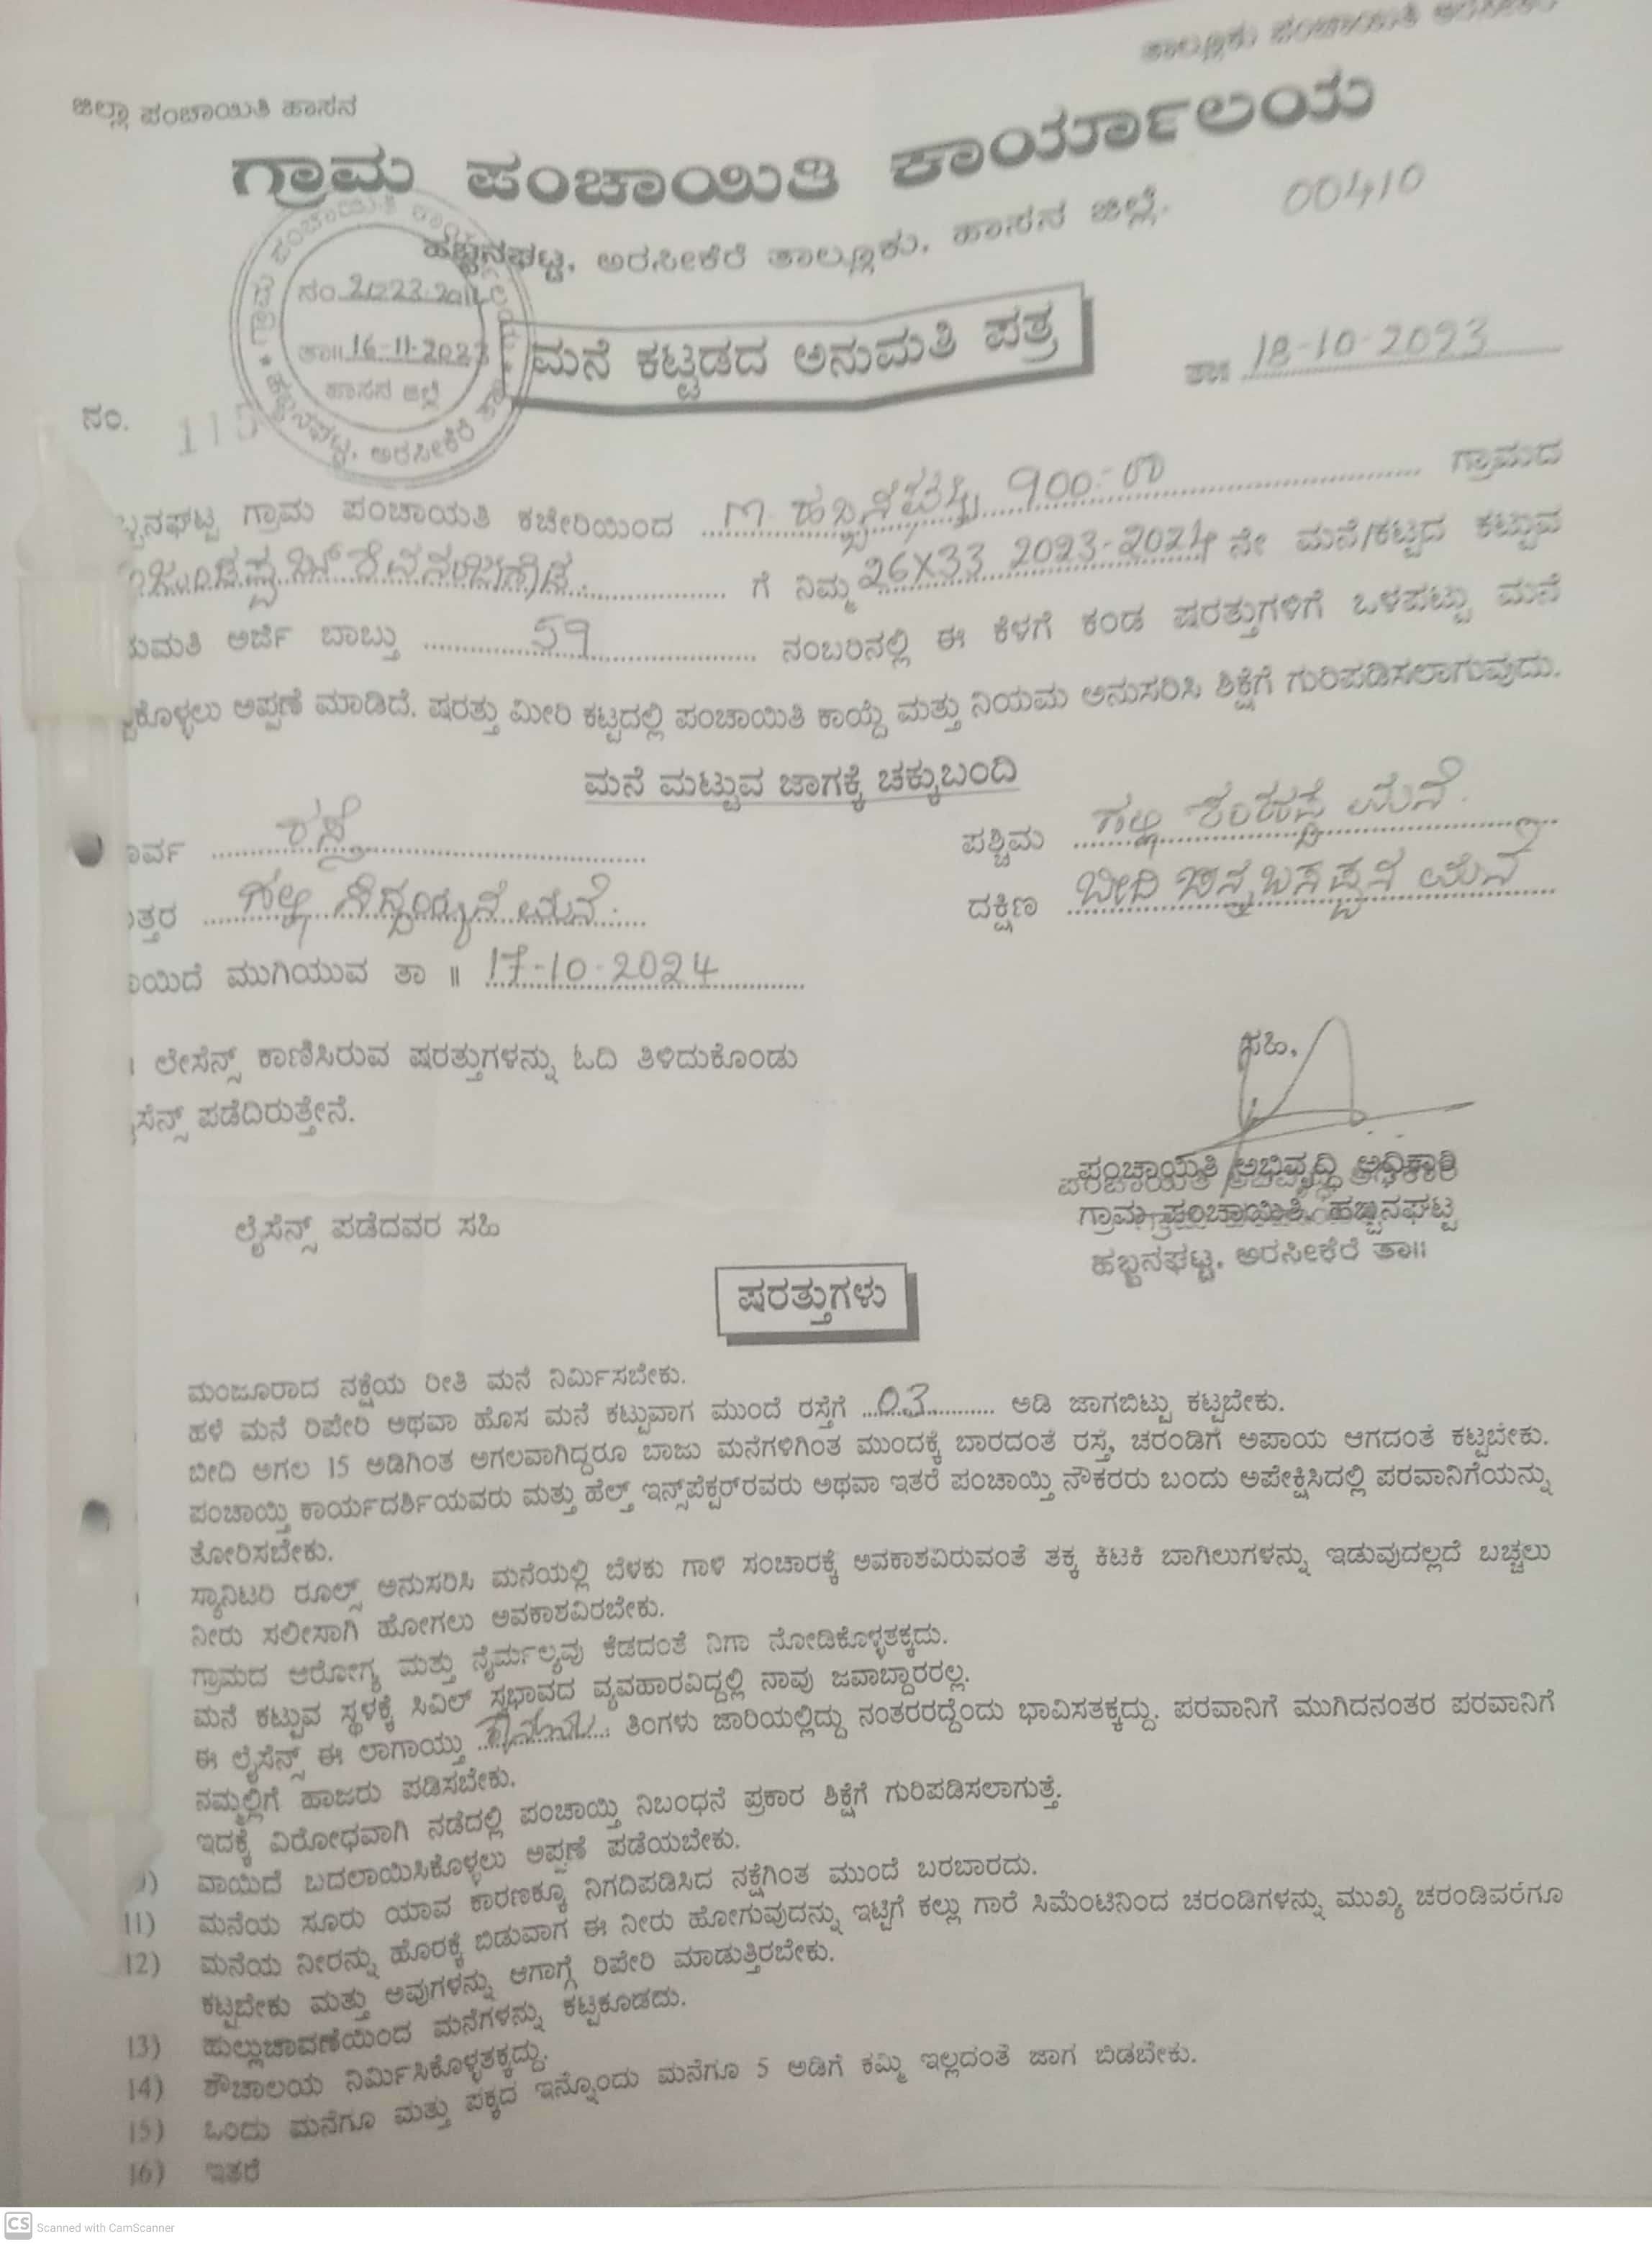 ಜಿಲ್ಲಾ ಪಂಚಾಯಿತಿ ಹಾಸನ
ತಾಲ್ಲೂಕು ಪಂಚಾಯಿತಿ ಅರಸೀಕೆರೆ
ಗ್ರಾಮ ಪಂಚಾಯಿತಿ ಕಾರ್ಯಾಲಯ
ಹಬ್ಬನಘಟ್ಟ, ಅರಸೀಕೆರೆ ತಾಲ್ಲೂಕು, ಹಾಸನ ಜಿಲ್ಲೆ. 00410
ನಂ. 2023-2024
ತಾ॥ 16-11-2023
ಹಾಸನ ಜಿಲ್ಲೆ
ಹಬ್ಬನಘಟ್ಟ, ಅರಸೀಕೆರೆ ತಾ॥
ಮನೆ ಕಟ್ಟಡದ ಅನುಮತಿ ಪತ್ರ
ನಂ. 115 ತಾ॥ 18-10-2023
ಬ್ಬನಘಟ್ಟ ಗ್ರಾಮ ಪಂಚಾಯತಿ ಕಚೇರಿಯಿಂದ ಹಬ್ಬನಘಟ್ಟ ಗ್ರಾಮದ
ಗೆ ನಿಮ್ಮ 26X33 2023-2024 ನೇ ಮನೆ/ಕಟ್ಟದ ಕಟ್ಟುವ
ನುಮತಿ ಅರ್ಜಿ ಬಾಬ್ತು 59 ನಂಬರಿನಲ್ಲಿ ಈ ಕೆಳಗೆ ಕಂಡ ಷರತ್ತುಗಳಿಗೆ ಒಳಪಟ್ಟು ಮನೆ
ಟ್ಟಿಕೊಳ್ಳಲು ಅಪ್ಪಣೆ ಮಾಡಿದೆ. ಷರತ್ತು ಮೀರಿ ಕಟ್ಟದಲ್ಲಿ ಪಂಚಾಯಿತಿ ಕಾಯ್ದೆ ಮತ್ತು ನಿಯಮ ಅನುಸರಿಸಿ ಶಿಕ್ಷೆಗೆ ಗುರಿಪಡಿಸಲಾಗುವುದು.
ಮನೆ ಮಟ್ಟುವ ಜಾಗಕ್ಕೆ ಚಕ್ಕುಬಂದಿ
ರ್ವ ರಸ್ತೆ ಪಶ್ಚಿಮ ಗಲ್ಲಿ ಮನೆ.
ತ್ತರ ಗಲ್ಲಿ ಸಿದ್ದಯ್ಯನ ಮನೆ. ದಕ್ಷಿಣ ಬೀದಿ ಚನ್ನಬಸಪ್ಪನ ಮನೆ
ಾಯಿದೆ ಮುಗಿಯುವ ತಾ ॥ 17-10-2024
ಲೇಸೆನ್ಸ್ ಕಾಣಿಸಿರುವ ಷರತ್ತುಗಳನ್ನು ಓದಿ ತಿಳಿದುಕೊಂಡು
ಸೆನ್ಸ್ ಪಡೆದಿರುತ್ತೇನೆ.
ಸಹಿ.
ಪಂಚಾಯತಿ ಅಭಿವೃದ್ಧಿ ಅಧಿಕಾರಿ
ಗ್ರಾಮ ಪಂಚಾಯಿತಿ, ಹಬ್ಬನಘಟ್ಟ
ಹಬ್ಬನಘಟ್ಟ, ಅರಸೀಕೆರೆ ತಾ॥
ಲೈಸೆನ್ಸ್ ಪಡೆದವರ ಸಹಿ
ಷರತ್ತುಗಳು
ಮಂಜೂರಾದ ನಕ್ಷೆಯ ರೀತಿ ಮನೆ ನಿರ್ಮಿಸಬೇಕು.
ಹಳೆ ಮನೆ ರಿಪೇರಿ ಅಥವಾ ಹೊಸ ಮನೆ ಕಟ್ಟುವಾಗ ಮುಂದೆ ರಸ್ತೆಗೆ 03 ಅಡಿ ಜಾಗಬಿಟ್ಟು ಕಟ್ಟಬೇಕು.
ಬೀದಿ ಅಗಲ 15 ಅಡಿಗಿಂತ ಅಗಲವಾಗಿದ್ದರೂ ಬಾಜು ಮನೆಗಳಿಗಿಂತ ಮುಂದಕ್ಕೆ ಬಾರದಂತೆ ರಸ್ತೆ, ಚರಂಡಿಗೆ ಅಪಾಯ ಆಗದಂತೆ ಕಟ್ಟಬೇಕು.
ಪಂಚಾಯ್ತಿ ಕಾರ್ಯದರ್ಶಿಯವರು ಮತ್ತು ಹೆಲ್ತ್ ಇನ್ಸ್‌ಪೆಕ್ಟರ್‌ರವರು ಅಥವಾ ಇತರೆ ಪಂಚಾಯ್ತಿ ನೌಕರರು ಬಂದು ಅಪೇಕ್ಷಿಸಿದಲ್ಲಿ ಪರವಾನಿಗೆಯನ್ನು
ತೋರಿಸಬೇಕು.
ಸ್ಯಾನಿಟರಿ ರೂಲ್ಸ್ ಅನುಸರಿಸಿ ಮನೆಯಲ್ಲಿ ಬೆಳಕು ಗಾಳಿ ಸಂಚಾರಕ್ಕೆ ಅವಕಾಶವಿರುವಂತೆ ತಕ್ಕ ಕಿಟಕಿ ಬಾಗಿಲುಗಳನ್ನು ಇಡುವುದಲ್ಲದೆ ಬಚ್ಚಲು
ನೀರು ಸಲೀಸಾಗಿ ಹೋಗಲು ಅವಕಾಶವಿರಬೇಕು.
ಗ್ರಾಮದ ಆರೋಗ್ಯ ಮತ್ತು ನೈರ್ಮಲ್ಯವು ಕೆಡದಂತೆ ನಿಗಾ ನೋಡಿಕೊಳ್ಳತಕ್ಕದು.
ಮನೆ ಕಟ್ಟುವ ಸ್ಥಳಕ್ಕೆ ಸಿವಿಲ್ ಸ್ವಭಾವದ ವ್ಯವಹಾರವಿದ್ದಲ್ಲಿ ನಾವು ಜವಾಬ್ದಾರರಲ್ಲ.
ಈ ಲೈಸೆನ್ಸ್ ಈ ಲಾಗಾಯ್ತು ತಿಂಗಳು ಜಾರಿಯಲ್ಲಿದ್ದು ನಂತರರದ್ದೆಂದು ಭಾವಿಸತಕ್ಕದ್ದು. ಪರವಾನಿಗೆ ಮುಗಿದನಂತರ ಪರವಾನಿಗೆ
ನಮ್ಮಲ್ಲಿಗೆ ಹಾಜರು ಪಡಿಸಬೇಕು.
ಇದಕ್ಕೆ ವಿರೋಧವಾಗಿ ನಡೆದಲ್ಲಿ ಪಂಚಾಯ್ತಿ ನಿಬಂಧನೆ ಪ್ರಕಾರ ಶಿಕ್ಷೆಗೆ ಗುರಿಪಡಿಸಲಾಗುತ್ತೆ.
9) ವಾಯಿದೆ ಬದಲಾಯಿಸಿಕೊಳ್ಳಲು ಅಪ್ಪಣೆ ಪಡೆಯಬೇಕು.
11) ಮನೆಯ ಸೂರು ಯಾವ ಕಾರಣಕ್ಕೂ ನಿಗದಿಪಡಿಸಿದ ನಕ್ಷೆಗಿಂತ ಮುಂದೆ ಬರಬಾರದು.
12) ಮನೆಯ ನೀರನ್ನು ಹೊರಕ್ಕೆ ಬಿಡುವಾಗ ಈ ನೀರು ಹೋಗುವುದನ್ನು ಇಟ್ಟಿಗೆ ಕಲ್ಲು ಗಾರೆ ಸಿಮೆಂಟಿನಿಂದ ಚರಂಡಿಗಳನ್ನು ಮುಖ್ಯ ಚರಂಡಿವರೆಗೂ
ಕಟ್ಟಬೇಕು ಮತ್ತು ಅವುಗಳನ್ನು ಆಗಾಗ್ಗೆ ರಿಪೇರಿ ಮಾಡುತ್ತಿರಬೇಕು.
13) ಹುಲ್ಲುಚಾವಣೆಯಿಂದ ಮನೆಗಳನ್ನು ಕಟ್ಟಕೂಡದು.
14) ಶೌಚಾಲಯ ನಿರ್ಮಿಸಿಕೊಳ್ಳತಕ್ಕದ್ದು.
15) ಒಂದು ಮನೆಗೂ ಮತ್ತು ಪಕ್ಕದ ಇನ್ನೊಂದು ಮನೆಗೂ 5 ಅಡಿಗೆ ಕಮ್ಮಿ ಇಲ್ಲದಂತೆ ಜಾಗ ಬಿಡಬೇಕು.
16) ಇತರೆ
CS Scanned with CamScanner